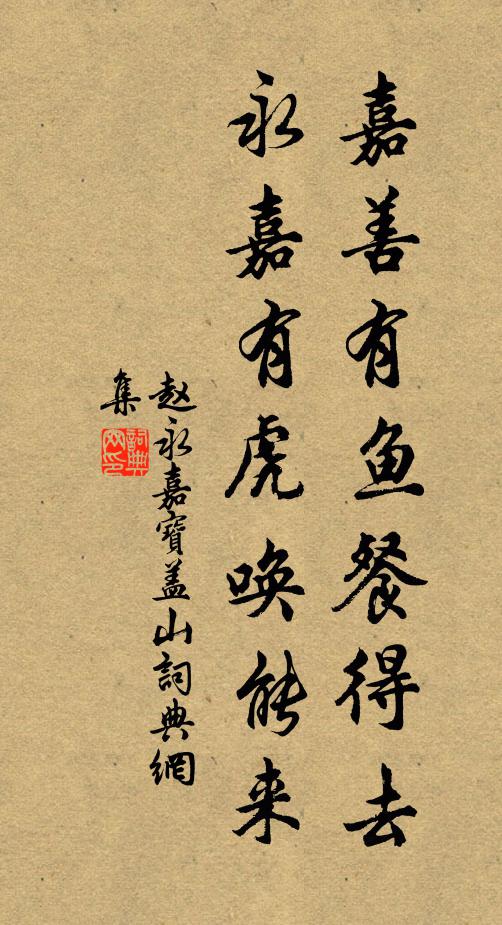 嘉善有鱼餐得去
永嘉有虎唤能来
赵永嘉寶盖山詞典網
集
詞典网印